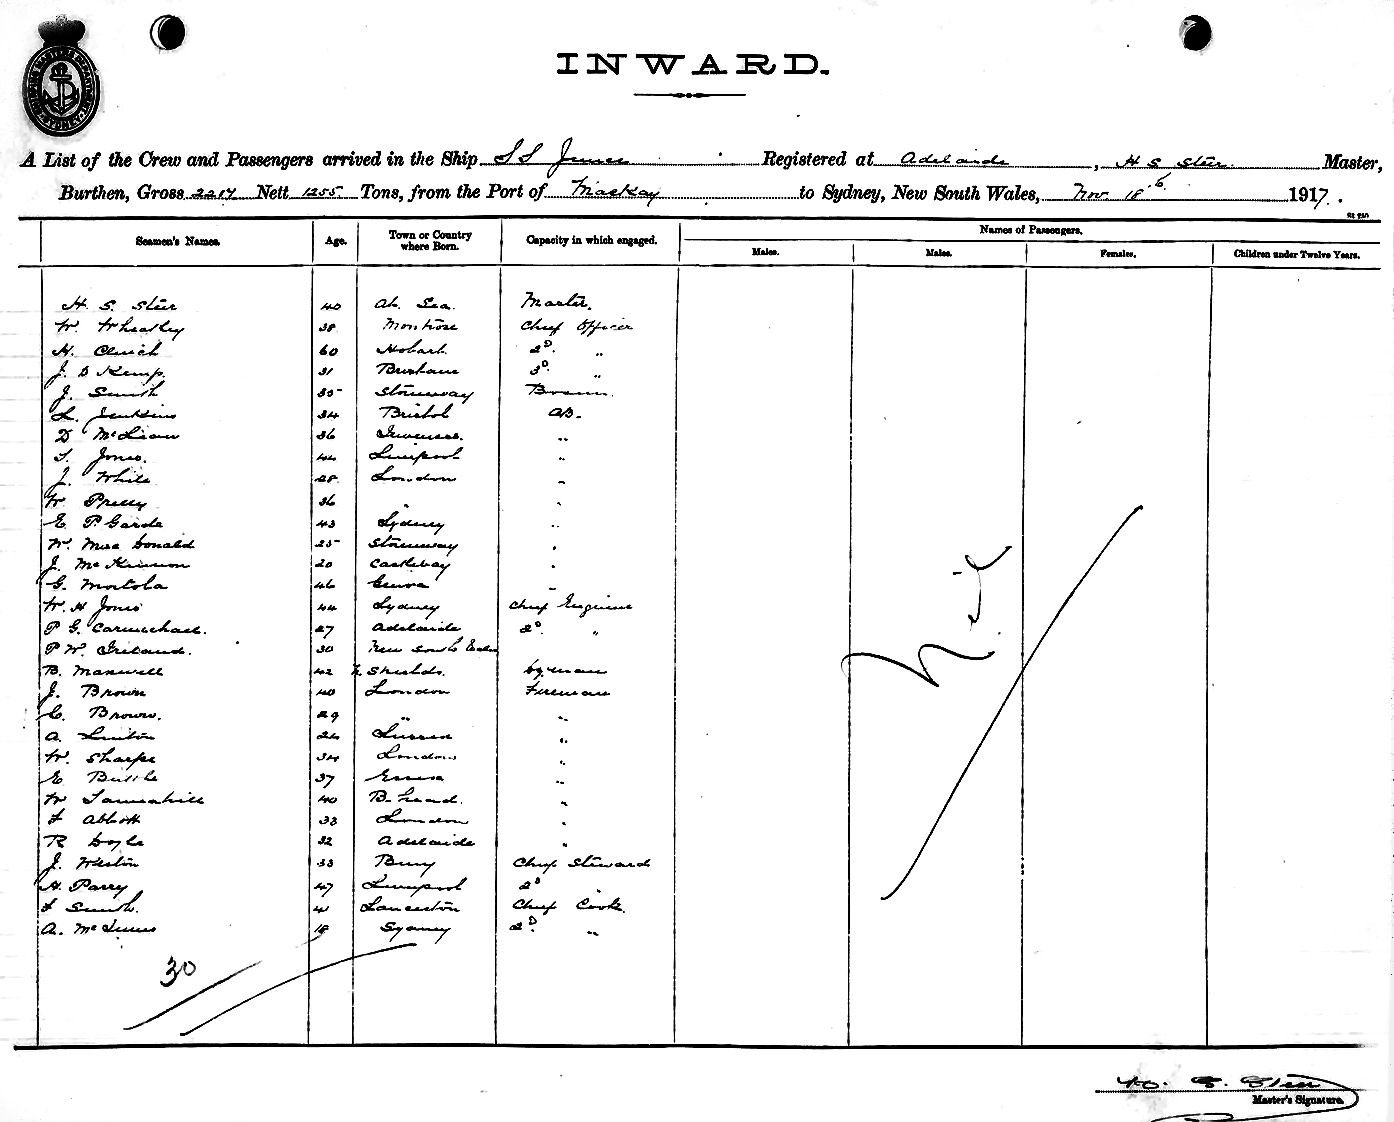 SHIPPING MASTERS DEPARTMENT SYDNEY
INWARD.
A List of the Crew and Passengers arrived in the Ship SS Junee Registered at Adelaide, H S Steer Master,
Burthen, Gross 2217 Nett 1255 Tons, from the Port of Mackay to Sydney, New South Wales, Nov 18th 1917.
Seamen's Names. Age. Town or Country where Born. Capacity in which engaged. Names of Passengers.
Males. Males. Females. Children under Twelve Years.
H. S. Steer 40 At Sea Master.
W. Wheatley 38 Montrose Chief Officer
H. 60 Hobart 2D "
J. B Kemp. 31 Brisbane 3D "
J. Smith 35 Stornoway Bosun.
L. Jenkins 34 Bristol AB.
D McLean 36 Inverness. "
T. Jones. 44 Liverpool "
J. White 28 London "
W. Pretty 36 " "
E P. Garde 43 Sydney "
W. MacDonald 25 Stornoway "
J. McKinnon 20 Castlebay "
G. 46 Genoa "
W. H Jones 44 Sydney Chief Engineer
P G. Carmichael. 27 Adelaide 2D "
P W. Ireland. 30 New South Wales
B. Maxwell 42 N. Shields.
J. Brown 40 London Fireman
C. Brown. 29 " "
A. 24 "
W. Sharpe 34 London "
E 37 Essex "
W Tannahill 40 B. head. "
F Abbott 33 London "
R Doyle 32 Adelaide "
J. Weston 33 Bury Chief Steward
H. Parry 47 Liverpool 2D "
F Smith. 41 Lanceston Chief Cook.
A. 18 Sydney 2D. "
Nil
30
H. S. Steer
Master's Signature.